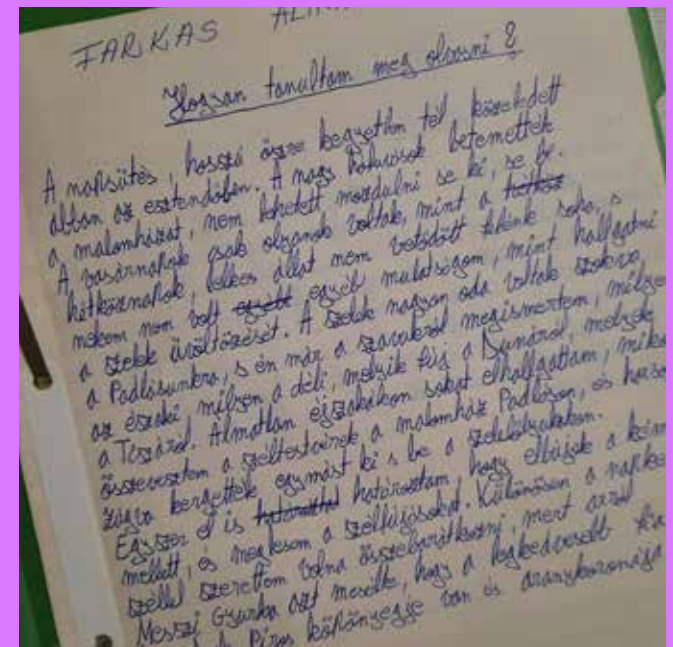 FARKAS
Hogyan tanultam meg olvasni?
A napsütés, hosszú őszre kegyetlen tél közeledett
abban az esztendőben. A nagy hóhullások betemették
a malomházat, nem lehetett mozdulni se ki, se be.
A vasárnapok csak olyanok voltak, mint a
hétköznapok, lelkes állat nem vetődött felénk soha, s
nékem nem volt egyéb mulatságom, mint hallgatni
a szelek üvöltözését. A szelek nagyon oda voltak szokva
a Padlásunkra, s én már a szavukról megismertem, milyen
az északi, milyen a déli, melyik fúj a Dunáról, melyik
a Tiszáról. Álmatlan éjszakákon sokat elhallgattam, mikor
összevesztem a széltestvérek a malomház Padlásán, és
zúgva kergették egymást ki s be a szelelőlyukakon.
Egyszer el is határoztam, hogy elbújok a
mellett, és meglesem a szélfúvásokat. Különösen a
széllel szerettem volna összebarátkozni, mert arról
Messzi Gyurka azt mesélte, hogy a legkedvesebb
Piros köpönyegje van és aranykoronája